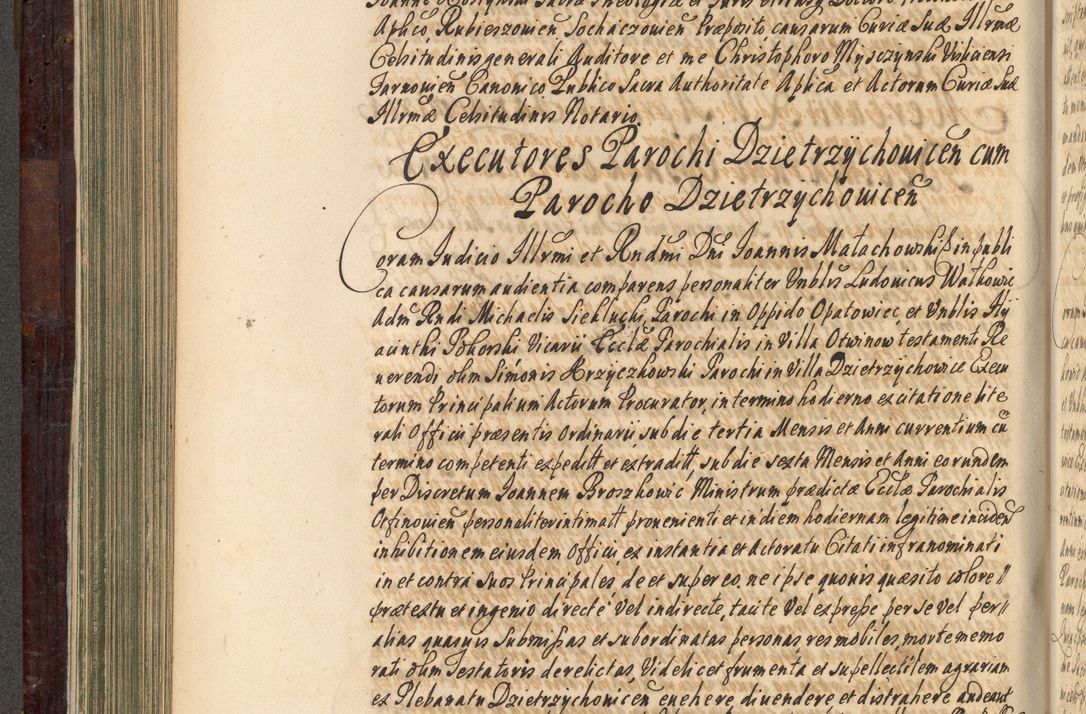 Joanne Kosynski Sacræ Theologiæ et Juris utriusq Doctore Protono
Aplico, Rubieszovieñ Sochaczovieñ Præposito causarum Curiæ Suæ Illrmæ
Celsitudinis generali Auditore et me Christophoro Mysczynski Visliciensi
Tarnovieñ Canonico Publico Sacra Authoritate Aplica et Actorum Curiæ Suæ
Illrmæ Celsitudinis Notario.
Executores Parochi Dzietrzychovicen cum
Parocho Dzietrzychovicen
Coram Judicio Illrmi et Rndmi Dni Joannis Małachowski in publi
ca causarum audientia comparens personaliter Vnblis Ludovicus Watkowic
Adm Rndi Michaelis Sieklucki, Parochi in Oppido Opatowiec, et Vnblis Hy
acinthi Pokorski Vicarii Ecclæ Parochialis in Villa Otwinow testamenti Re
uerendi olim Simonis Krzyczkowski Parochi in Villa Dzietrzychowice Execu
torum Principalium Actorum Procurator, in termino hodierno ex citatione lite
rali Officii præsentis Ordinarii, sub die tertia Mensis et Anni currentium cū
termino competenti expeditt et extraditt, sub die sexta Mensis et Anni eorundem
per Discretum Joannem Broszkowic Ministrum prædictæ Ecclæ Parochialis
Otfinovieñ personaliter intimatt provenienti et in diem hodiernam legitime inciden
inhibitionem eiusdem Officii, ex instantia et Actoratu Citati infranominati
in et contra suos Principales, de et super eo, ne ipse quovis quæsito colore
prætextu et ingenio directe vel indirecte, tacite vel expresse per se vel per
alias quasvis submissas et subordinatas personas res mobiles morte memo
rati olim Testatoris derelictas, videlicet frumenta et supellectilem agrariam
ex Plebanatu Dzietrzychovicen euehere, diuendere, et distrahere audeant